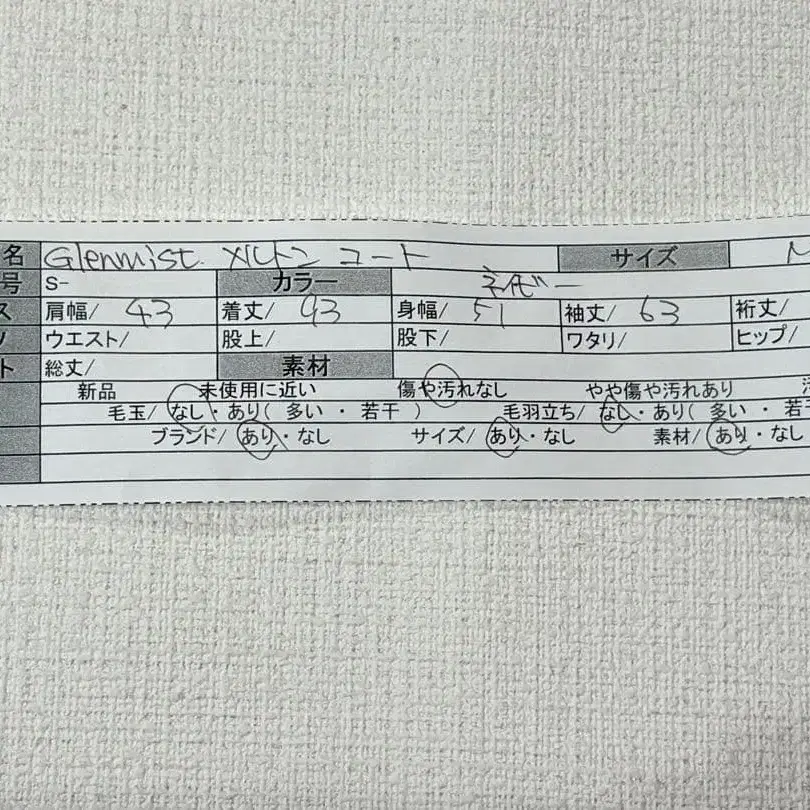 名 Glenmist. メルトン コート サイズ M
号 S- カラー ネイビー
ス 肩幅/ 43 着丈/ 93 身幅/ 51 袖丈/ 63 裄丈/
ツ ウエスト/ 股上/ 股下/ ワタリ/ ヒップ/
ト 総丈/ 素材
新品 未使用に近い 傷や汚れなし やや傷や汚れあり
毛玉/ なし・あり( 多い ・ 若干 ) 毛羽立ち/ なし・あり( 多い ・ 若干
ブランド/ あり・なし サイズ/ あり・なし 素材/ あり・なし